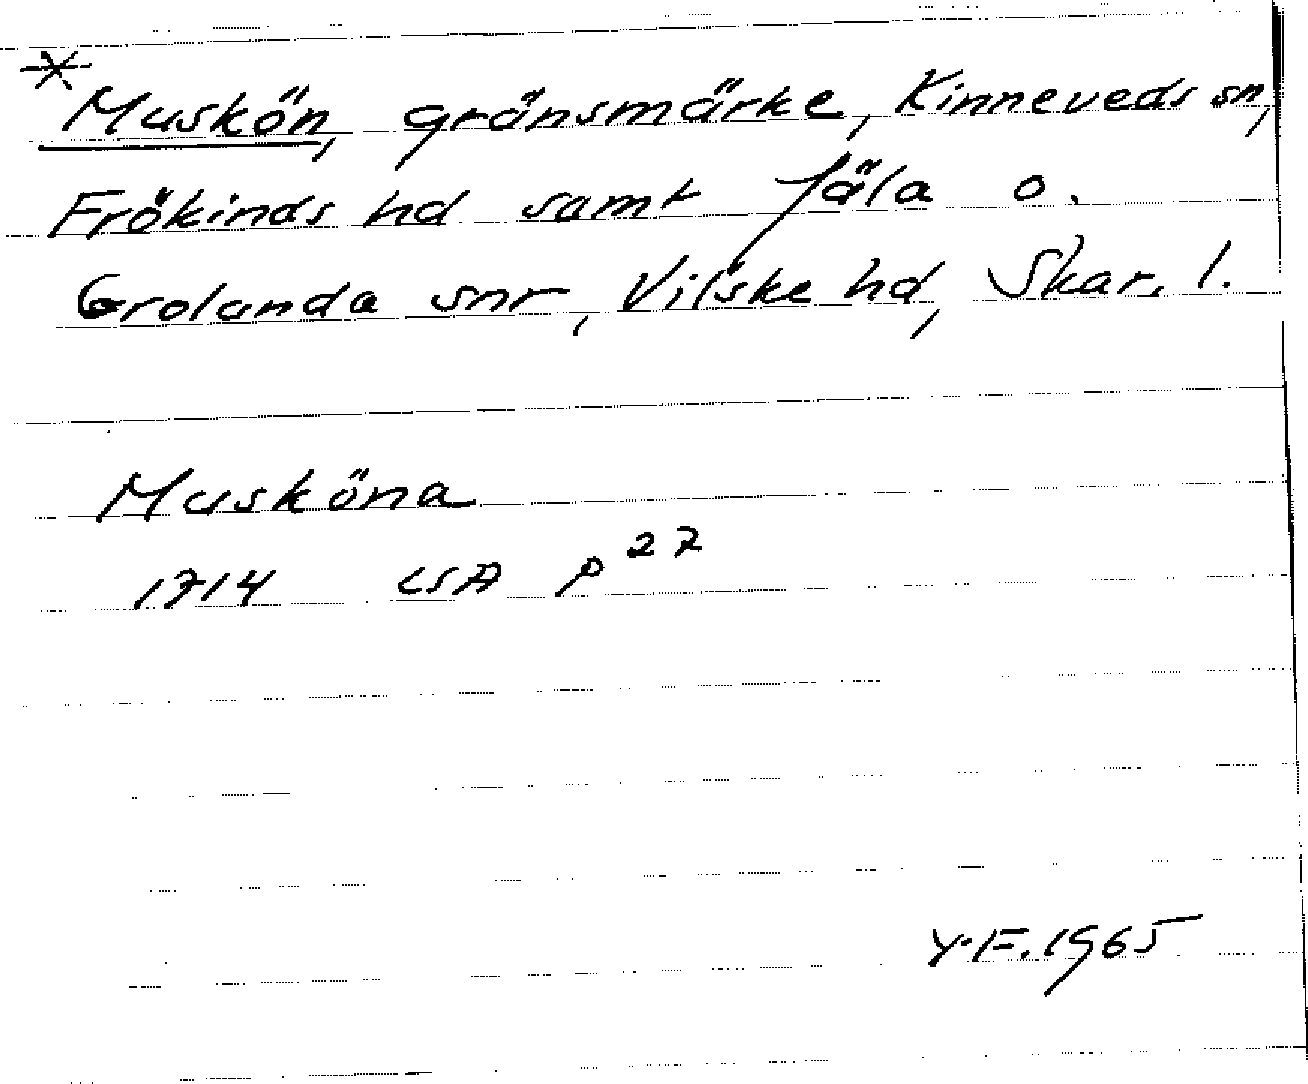 * Muskön, gränsmärke, Kinneveds sn,
Frökinds hd samt Jäla o.
Grolanda snr, Vilske hd, Skar. l.
Musköna
1714 LSA P 27
Y.F. 1965